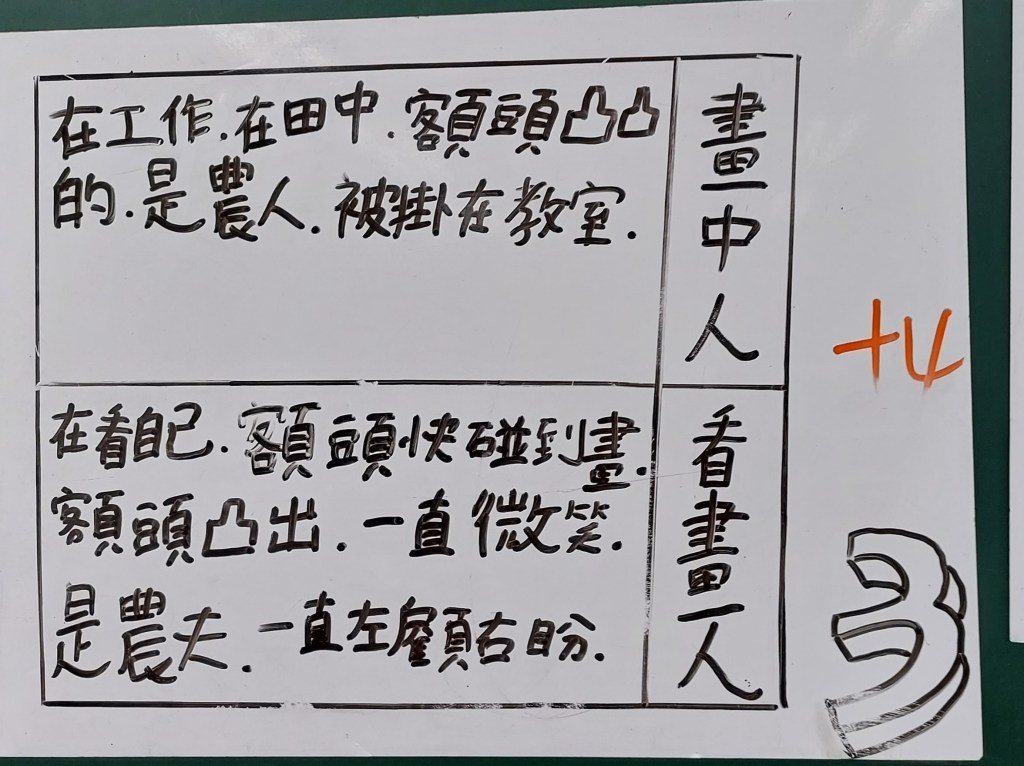 在工作.在田中.額頭凸凸
的.是農人.被掛在教室.
畫中人
+4
在看自己.額頭快碰到畫.
額頭凸出.一直微笑.
是農夫.一直左顧右盼.
看畫人
3